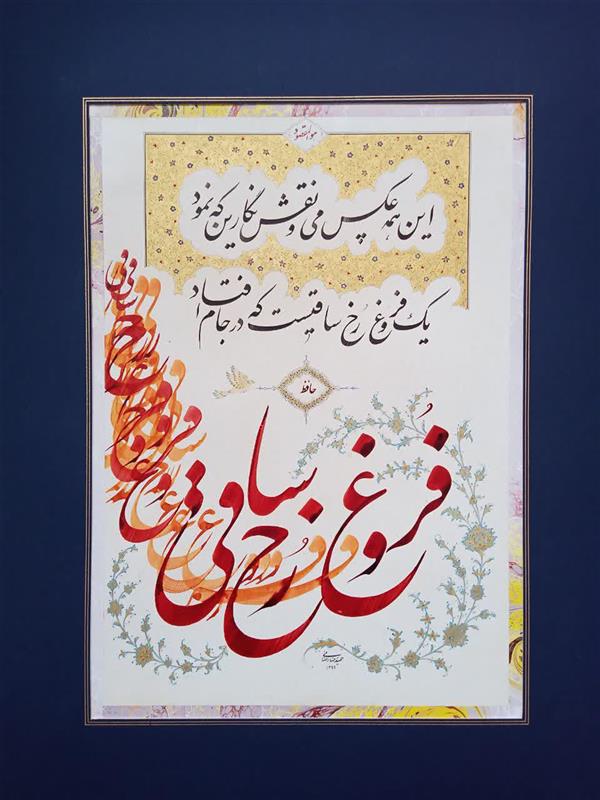 هوالمقصود
این همه عکس می و نقش نگارین که نمود
یک فروغ رخ ساقیست که در جام افتاد
حافظ
فروغ رخ ساقی